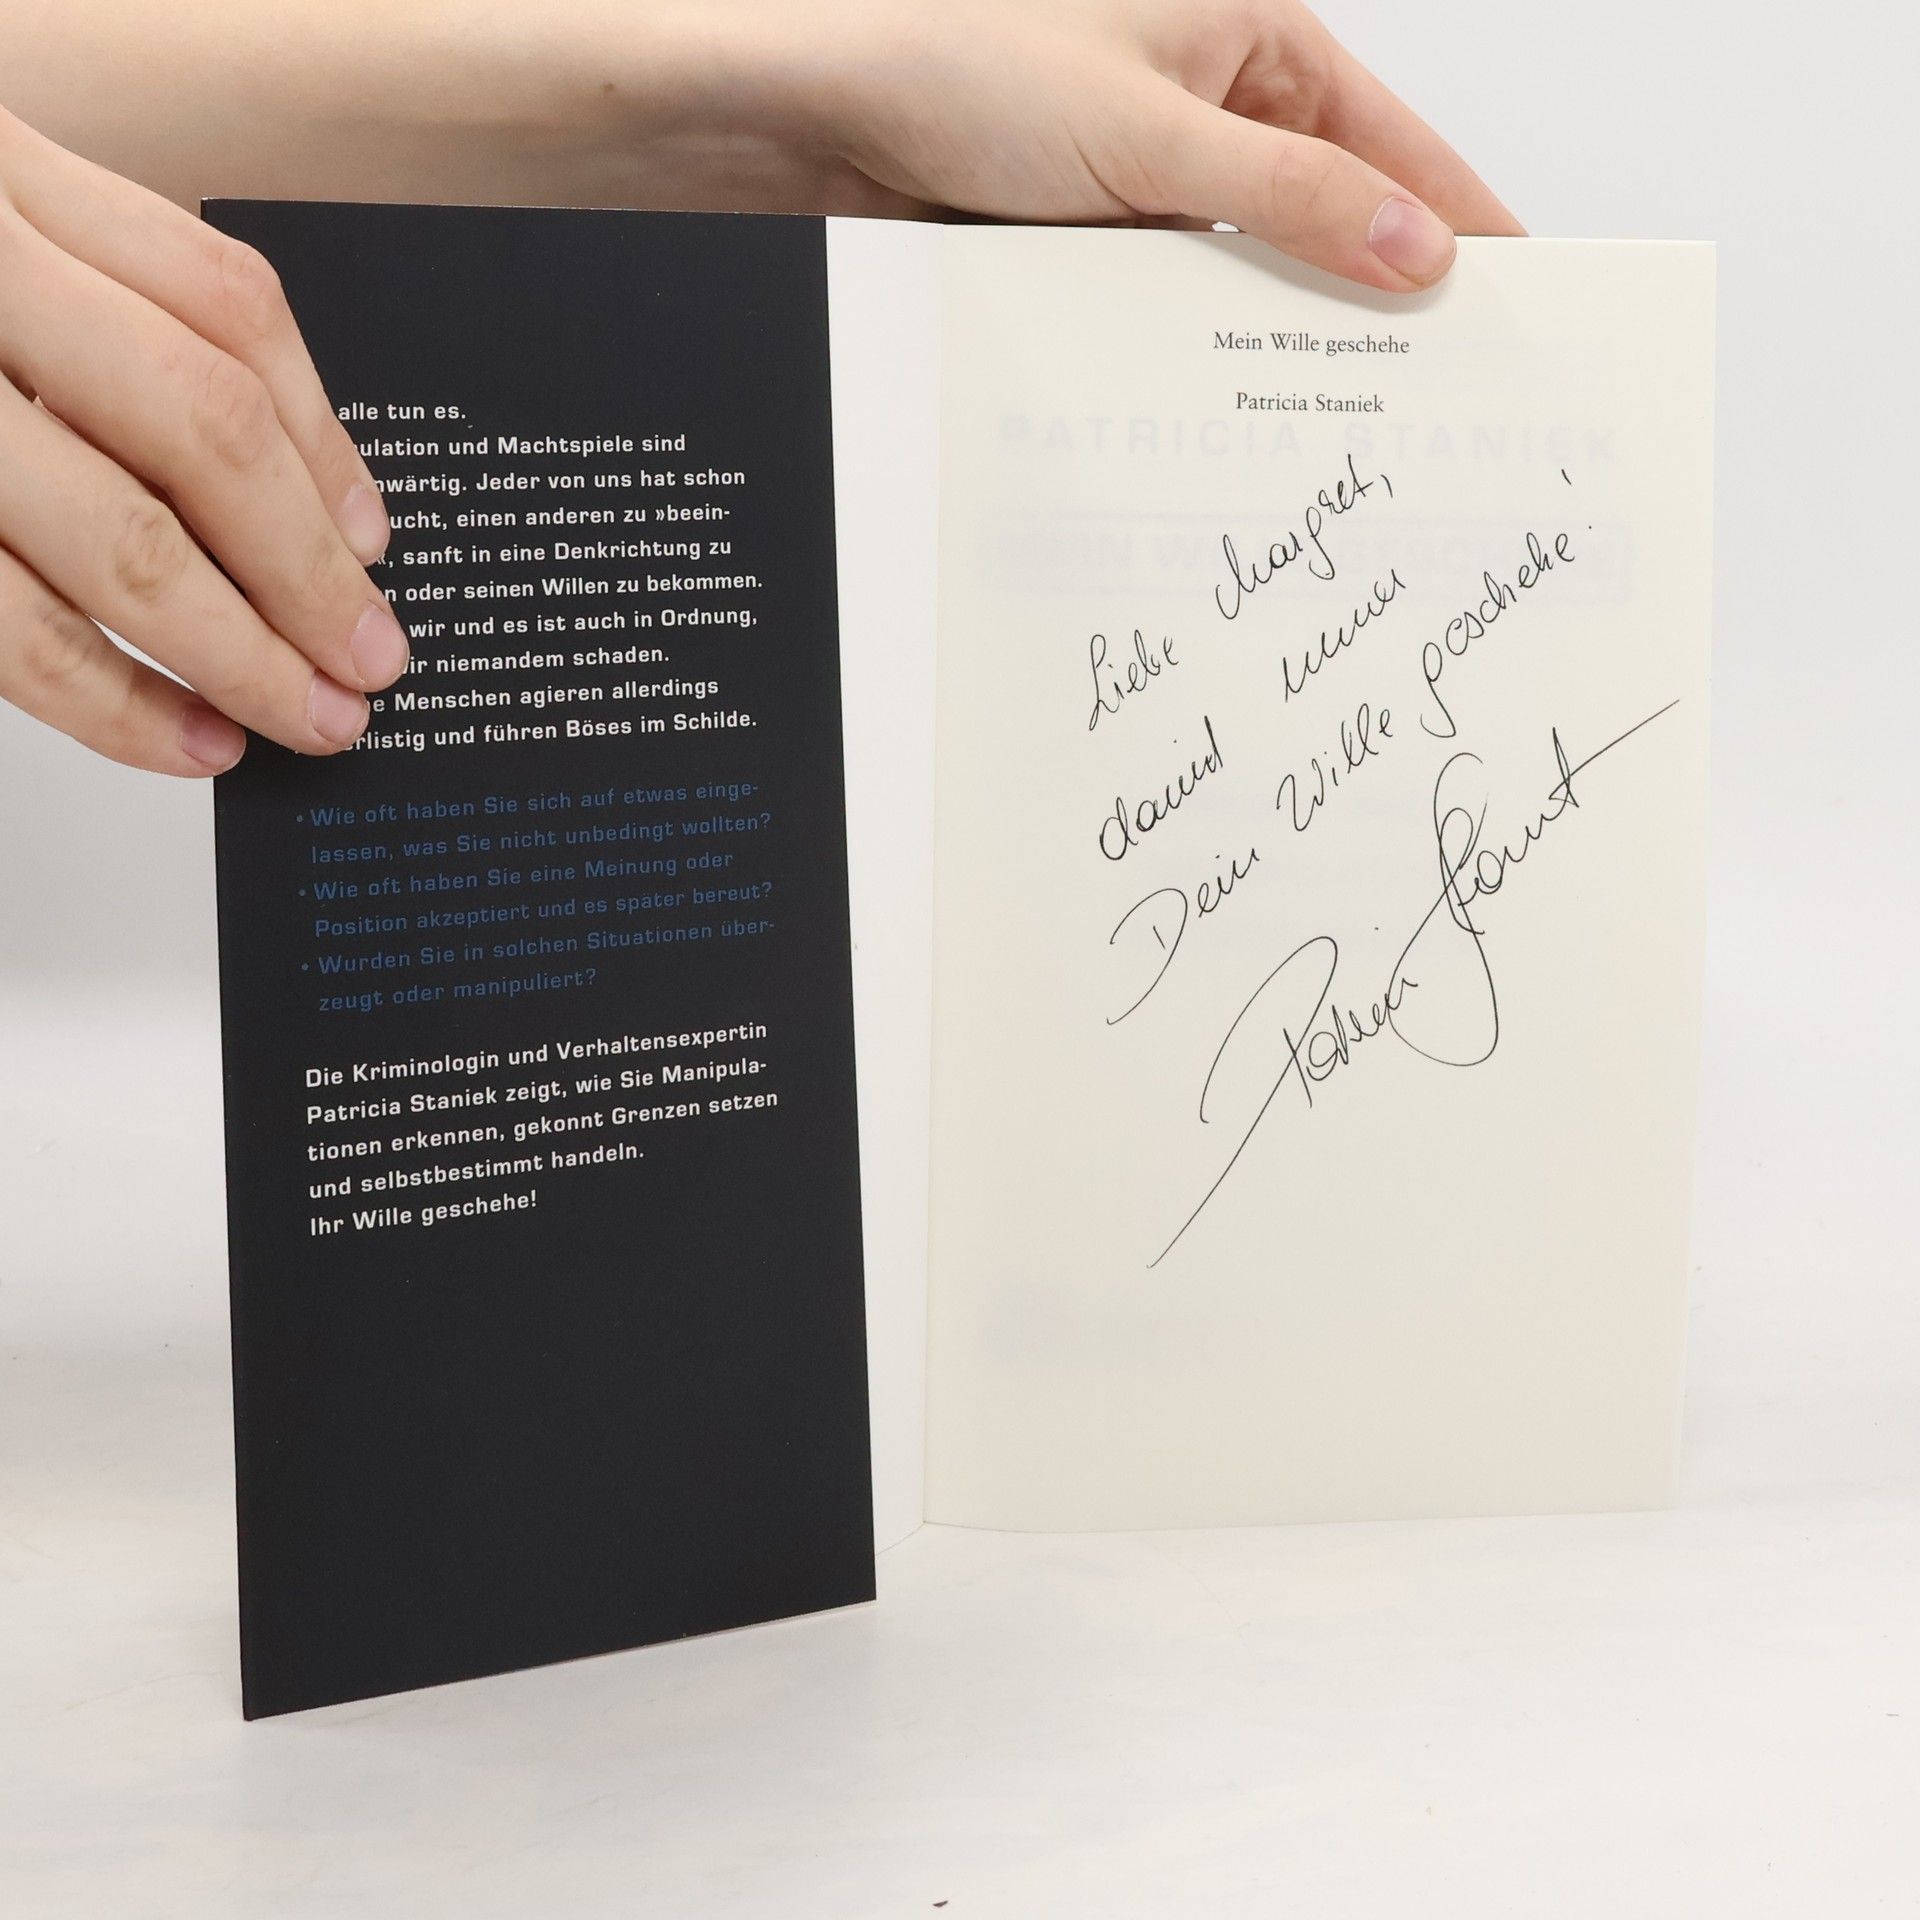 alle tun es.
ulation und Machtspiele sind
wärtig. Jeder von uns hat schon
ucht, einen anderen zu »beein-
«, sanft in eine Denkrichtung zu
n oder seinen Willen zu bekommen.
wir und es ist auch in Ordnung,
ir niemandem schaden.
e Menschen agieren allerdings
rlistig und führen Böses im Schilde.
• Wie oft haben Sie sich auf etwas einge-
lassen, was Sie nicht unbedingt wollten?
• Wie oft haben Sie eine Meinung oder
Position akzeptiert und es später bereut?
• Wurden Sie in solchen Situationen über-
zeugt oder manipuliert?
Die Kriminologin und Verhaltensexpertin
Patricia Staniek zeigt, wie Sie Manipula-
tionen erkennen, gekonnt Grenzen setzen
und selbstbestimmt handeln.
Ihr Wille geschehe!
Mein Wille geschehe
Patricia Staniek
PATRICIA STANIEK
Liebe Margret,
damit immer
Dein Wille geschehe!